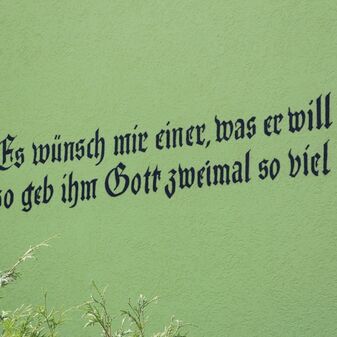 Es wünsch mir einer, was er will
so geb ihm Gott zweimal so viel